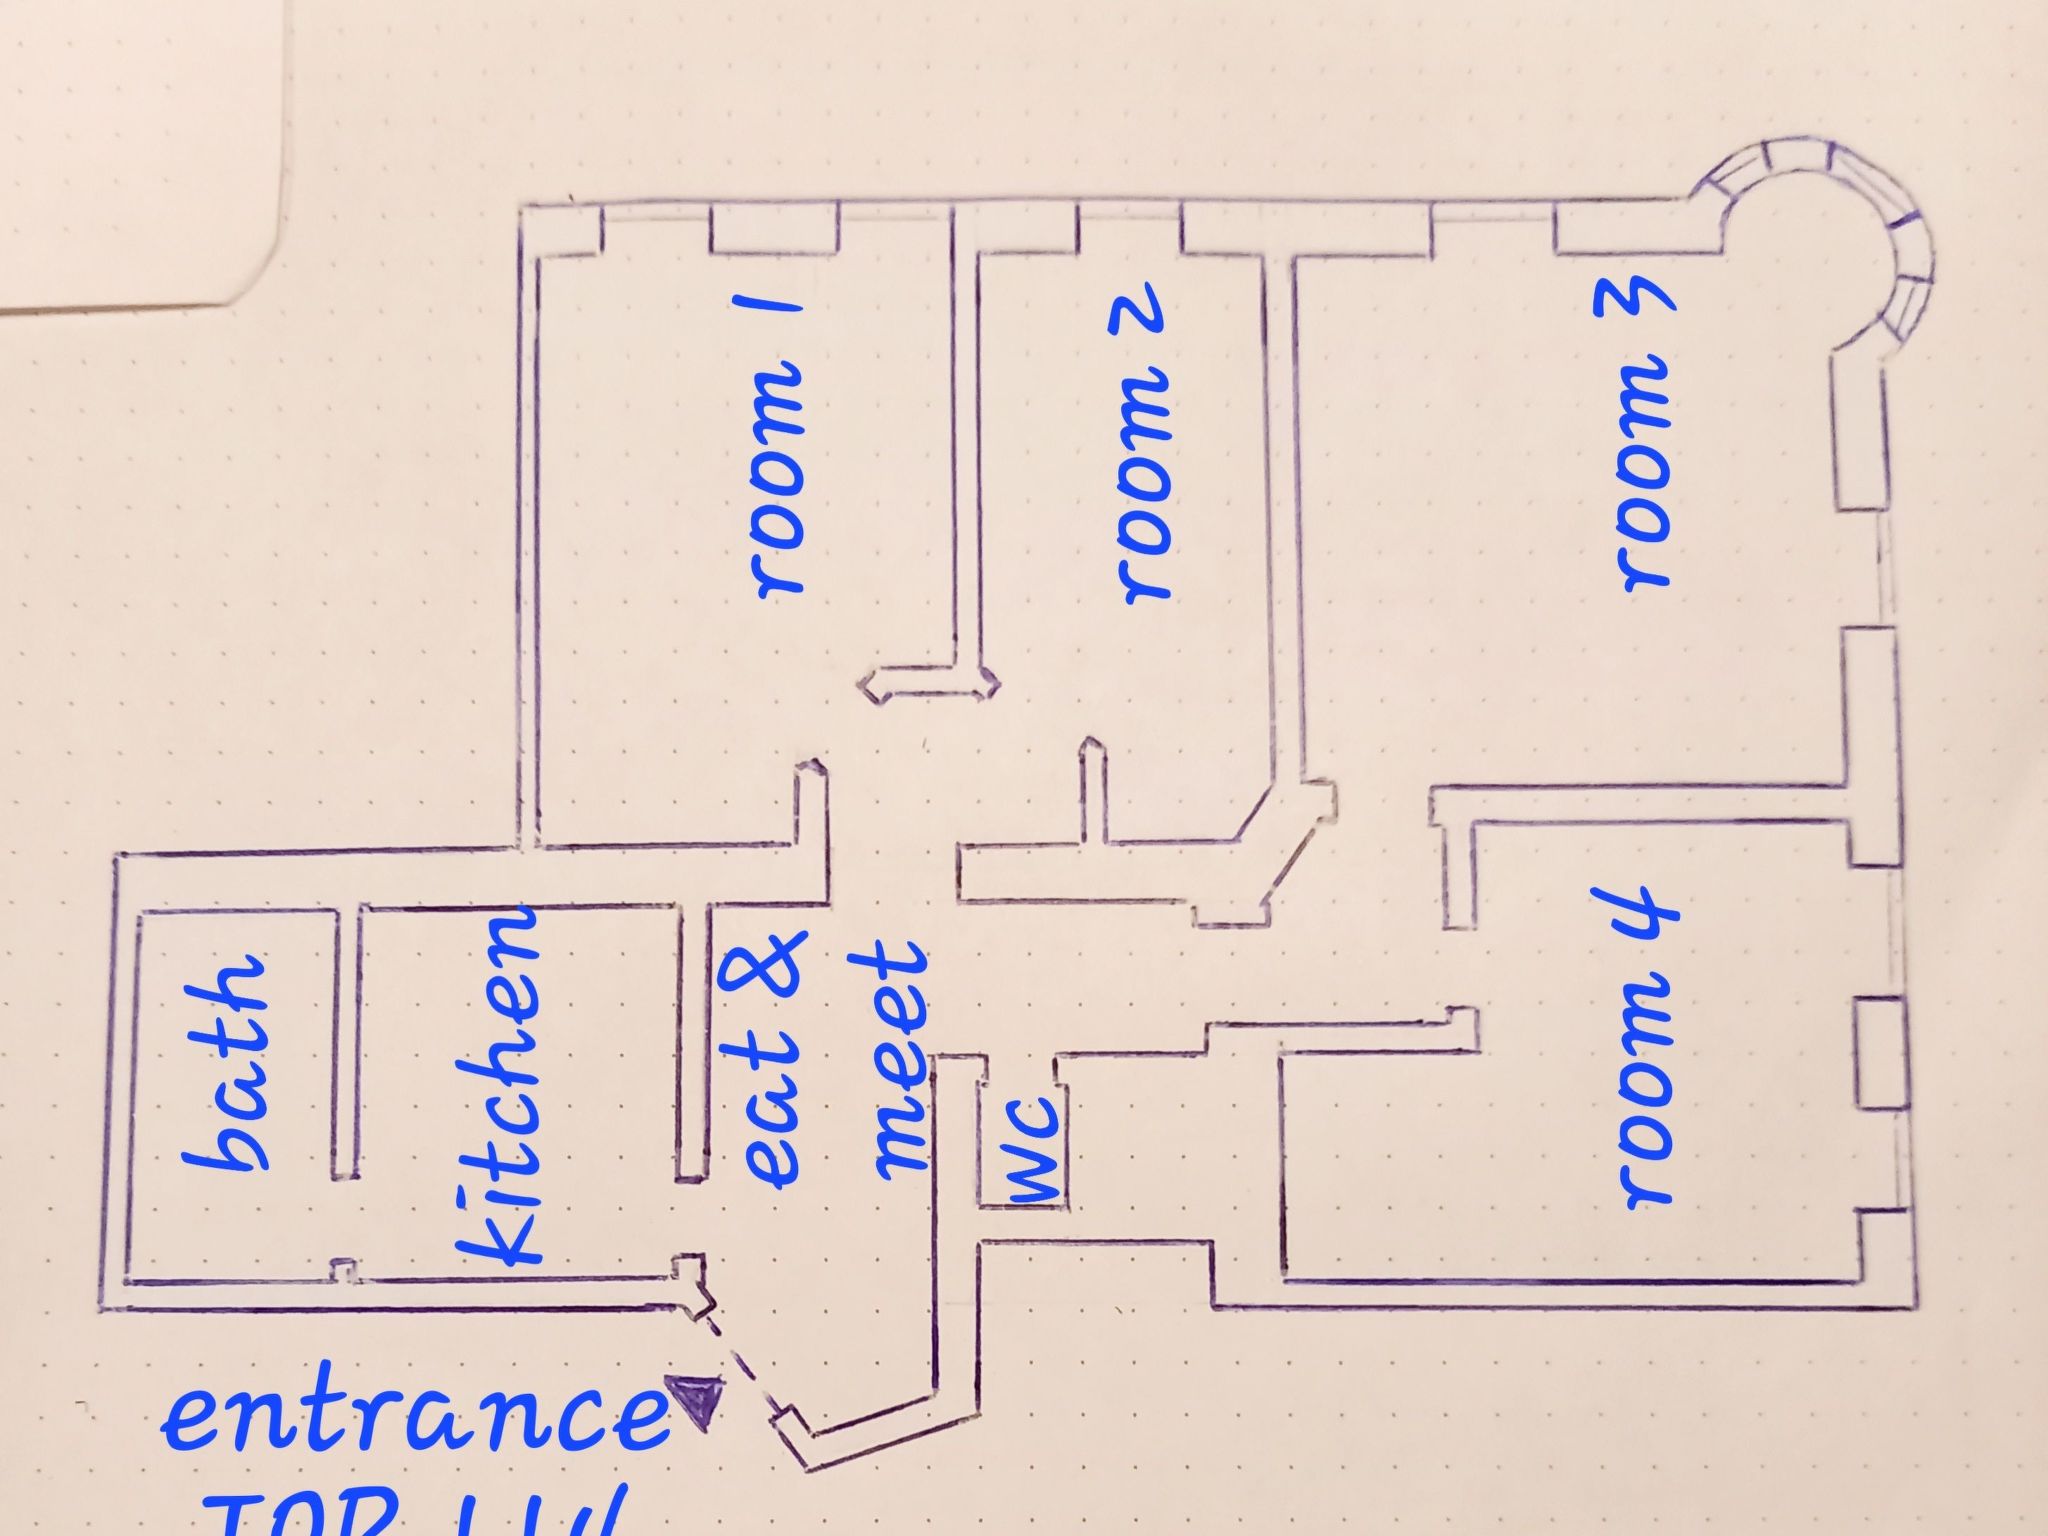 room 1
room 2
room 3
room 4
bath
kitchen
eat &
meet
WC
entrance